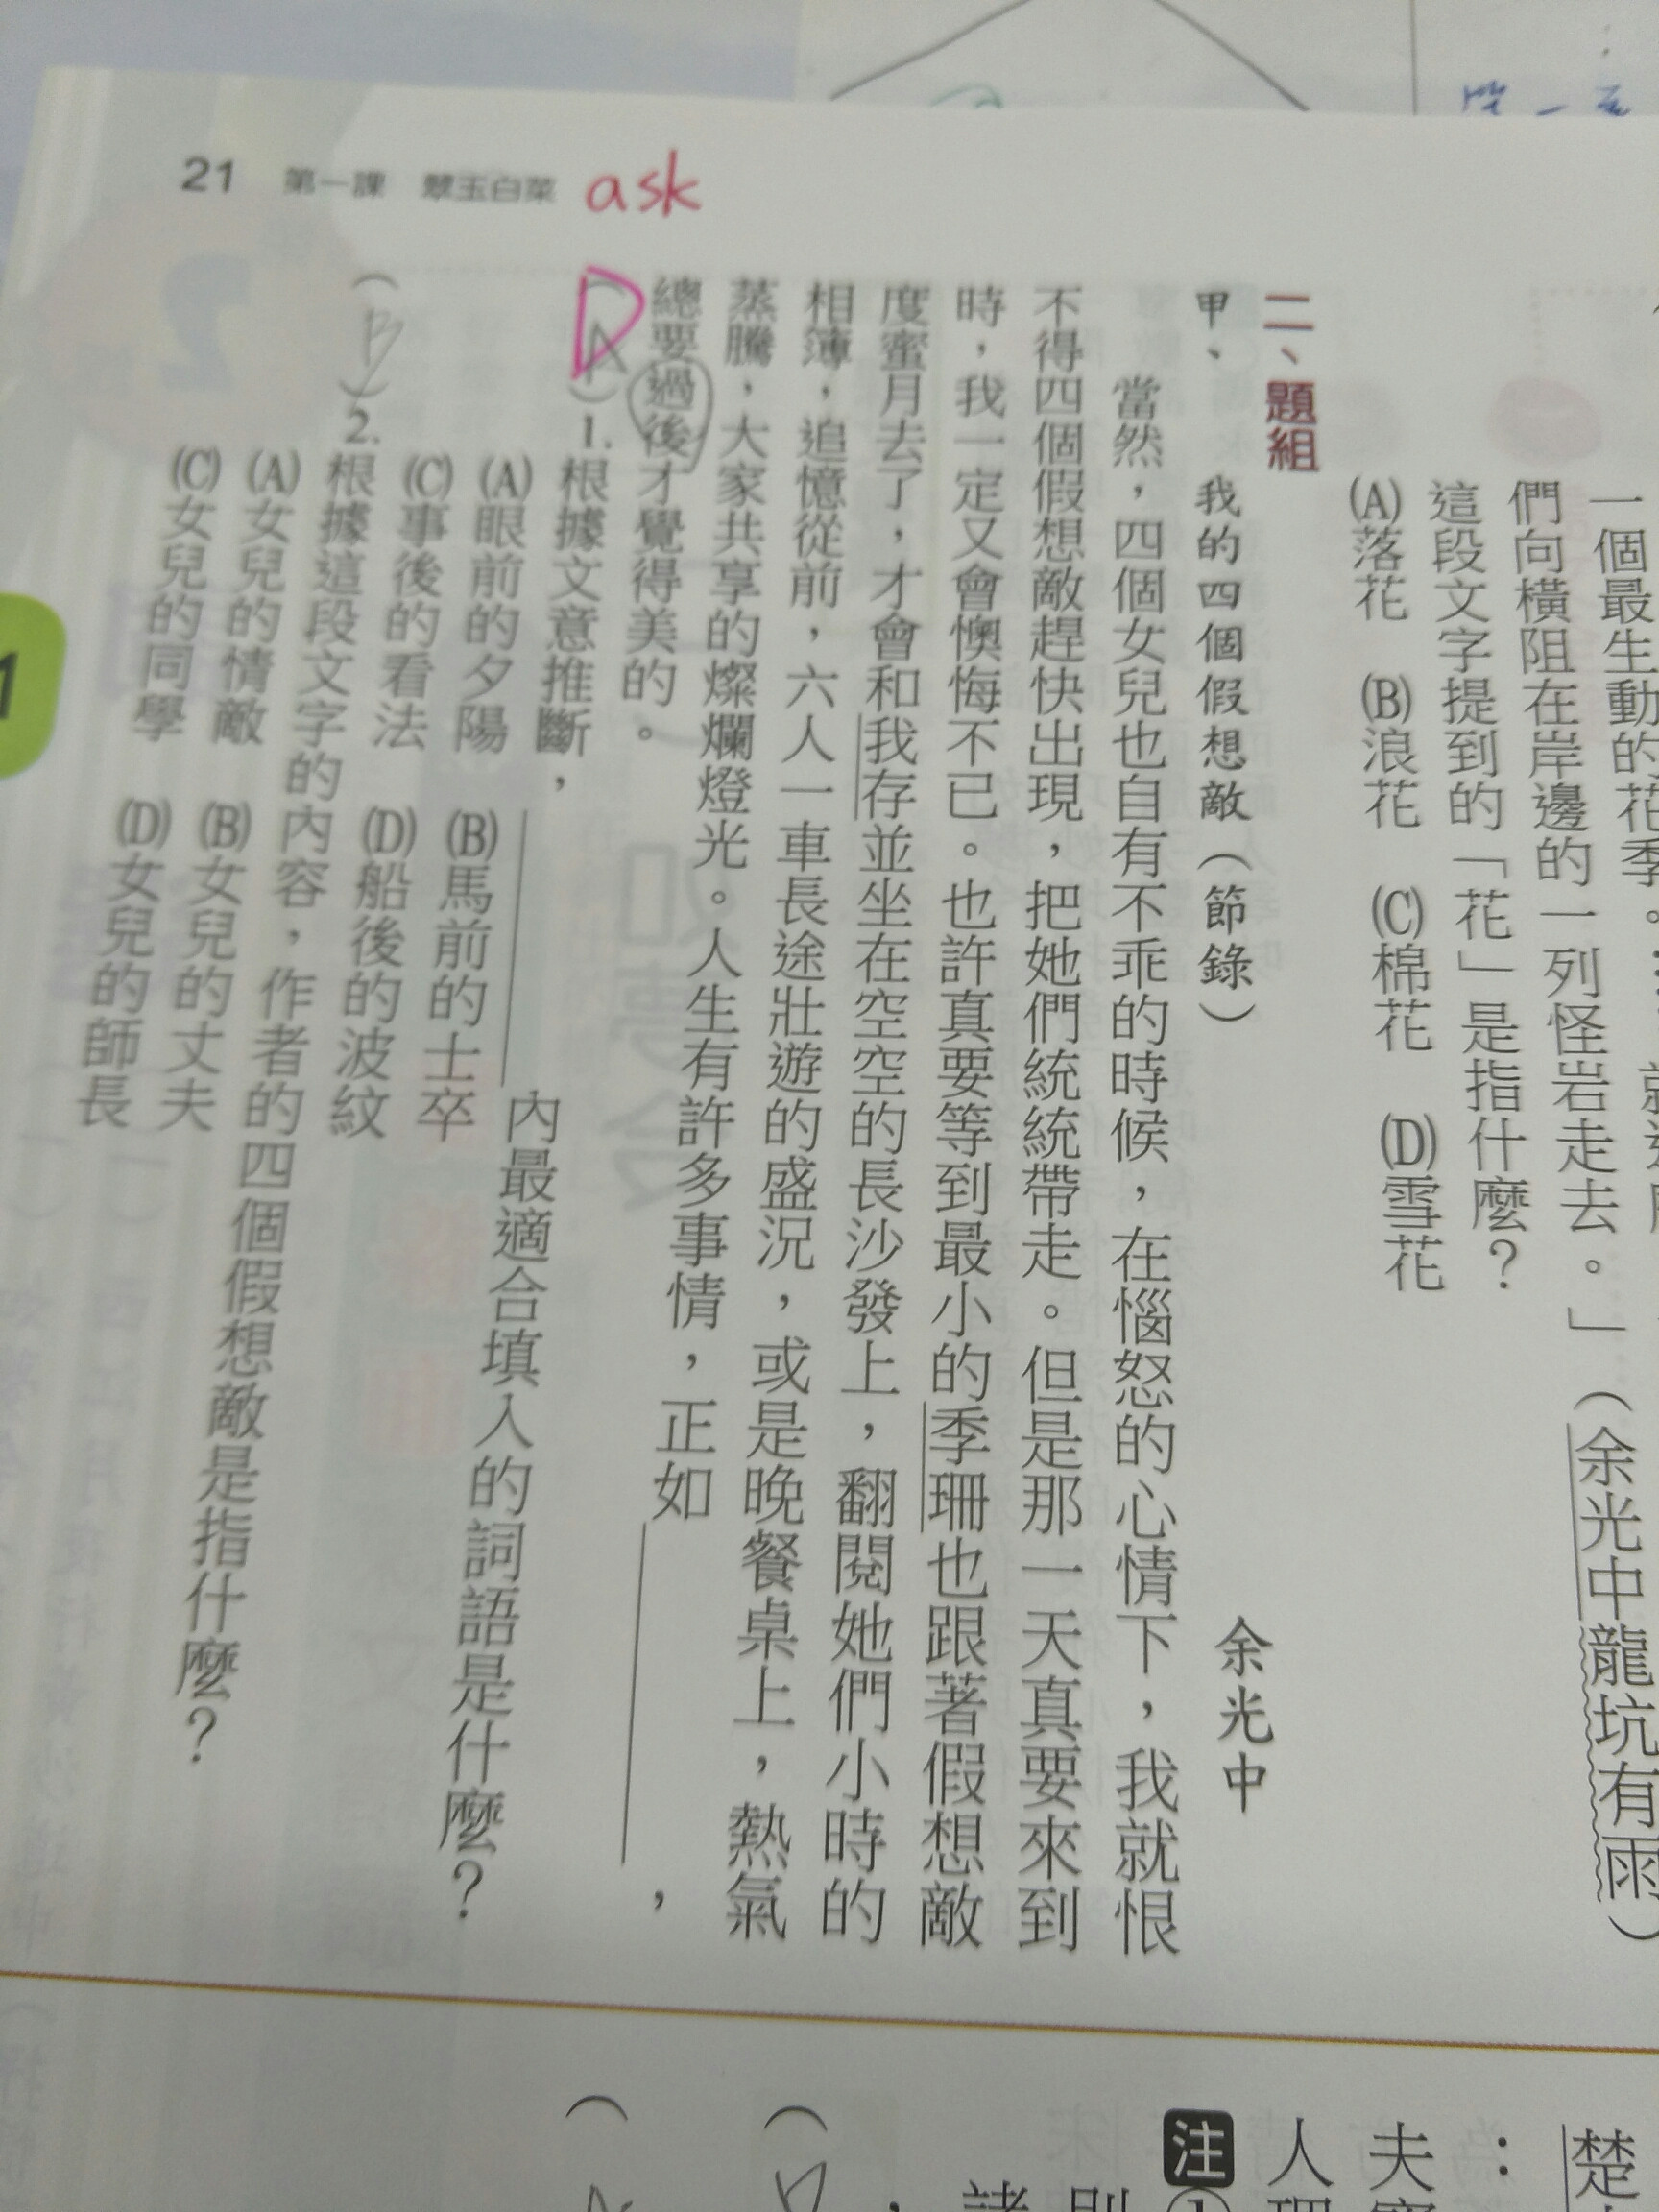 21 第一課 翠玉白菜 ask
一個最生動的花季。
們向橫阻在岸邊的一列怪岩走去。」（余光中龍坑有雨）
這段文字提到的「花」是指什麼？
(A)落花 (B)浪花 (C)棉花 (D)雪花
二、題組
甲、 我的四個假想敵（節錄） 余光中
當然，四個女兒也自有不乖的時候，在惱怒的心情下，我就恨
不得四個假想敵趕快出現，把她們統統帶走。但是那一天真要來到
時，我一定又會懊悔不已。也許真要等到最小的季珊也跟著假想敵
度蜜月去了，才會和我存並坐在空空的長沙發上，翻閱她們小時的
相簿，追憶從前，六人一車長途壯遊的盛況，或是晚餐桌上，熱氣
蒸騰，大家共享的燦爛燈光。人生有許多事情，正如＿＿＿，
總要過後才覺得美的。
D
（A）1.根據文意推斷，＿＿＿內最適合填入的詞語是什麼？
(A)眼前的夕陽 (B)馬前的士卒
(C)事後的看法 (D)船後的波紋
（B）2.根據這段文字的內容，作者的四個假想敵是指什麼？
(A)女兒的情敵 (B)女兒的丈夫
(C)女兒的同學 (D)女兒的師長
1
楚
：
夫
人
注